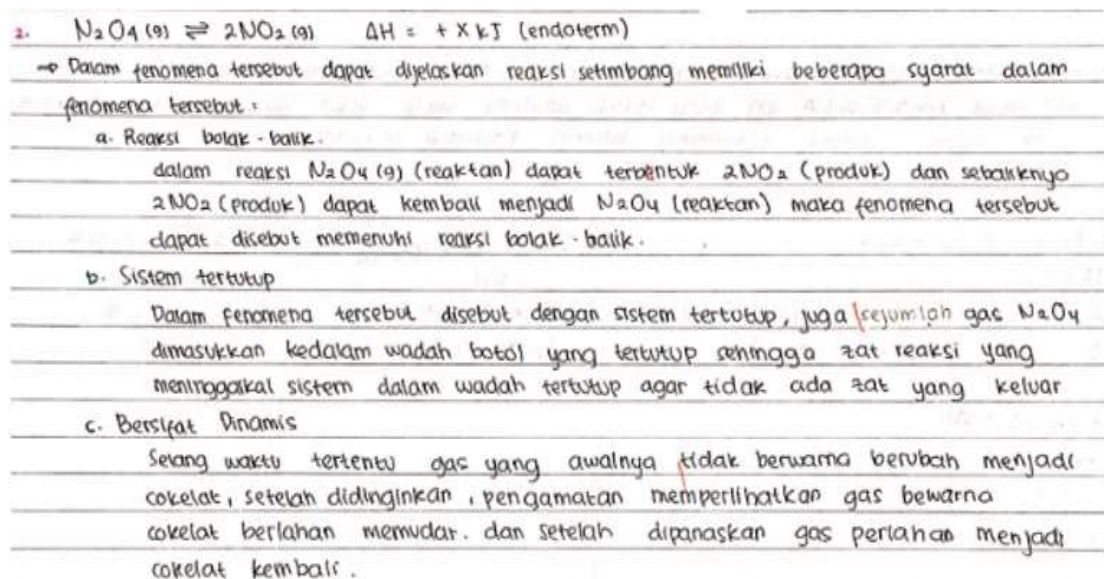 2. N₂O4 (g) ⇌ 2NO₂ (g) ΔH = + X kJ (endoterm)
→ Dalam fenomena tersebut dapat dijelaskan reaksi setimbang memiliki beberapa syarat dalam
fenomena tersebut :
a. Reaksi bolak - balik.
dalam reaksi N₂O4 (g) (reaktan) dapat terbentuk 2NO₂ (produk) dan sebaliknya
2NO₂ (produk) dapat kembali menjadi N₂O4 (reaktan) maka fenomena tersebut
dapat disebut memenuhi reaksi bolak - balik.
b. Sistem tertutup
Dalam fenomena tersebut disebut dengan sistem tertutup, juga sejumlah gas N₂O4
dimasukkan kedalam wadah botol yang tertutup sehingga zat reaksi yang
meninggalkal sistem dalam wadah tertutup agar tidak ada zat yang keluar
c. Bersifat Dinamis
Selang waktu tertentu gas yang awalnya tidak berwarna berubah menjadi
cokelat, setelah didinginkan, pengamatan memperlihatkan gas bewarna
cokelat berlahan memudar. dan setelah dipanaskan gas perlahan menjadi
cokelat kembali.